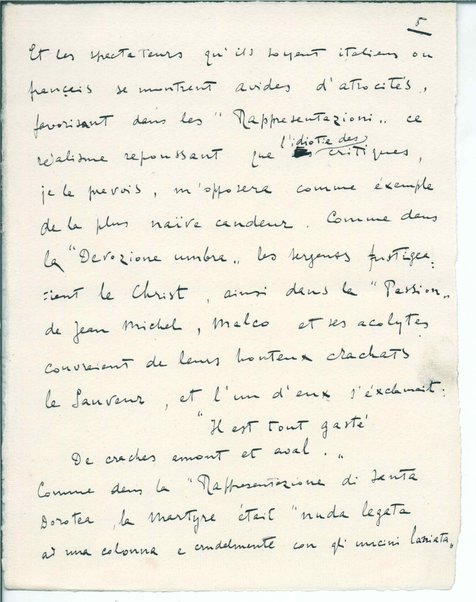 5
Et les spectateurs qu'ils soyent italiens ou
français se montrent avides d'atrocités,
favorisant dans les "Rappresentazioni" ce
réalisme repoussant que l'idiotie des critiques,
je le prevois, m'opposera comme éxemple
de la plus naïve candeur. Comme dans
la "Devozione umbra" les sergens fustigea-
ient le Christ, ainsi dans la "Passion"
de Jean Michel, Malco et ses acolytes
couvraient de leurs honteux crachats
le Sauveur, et l'un d'eux s'éxclamait:
"Il est tout gasté
De craches amont et aval."
Comme dans la "Rappresentazione di Santa
Dorotea, la martyre était "nuda legata
ad una colonna e crudelmente con gli uncini lassiata"